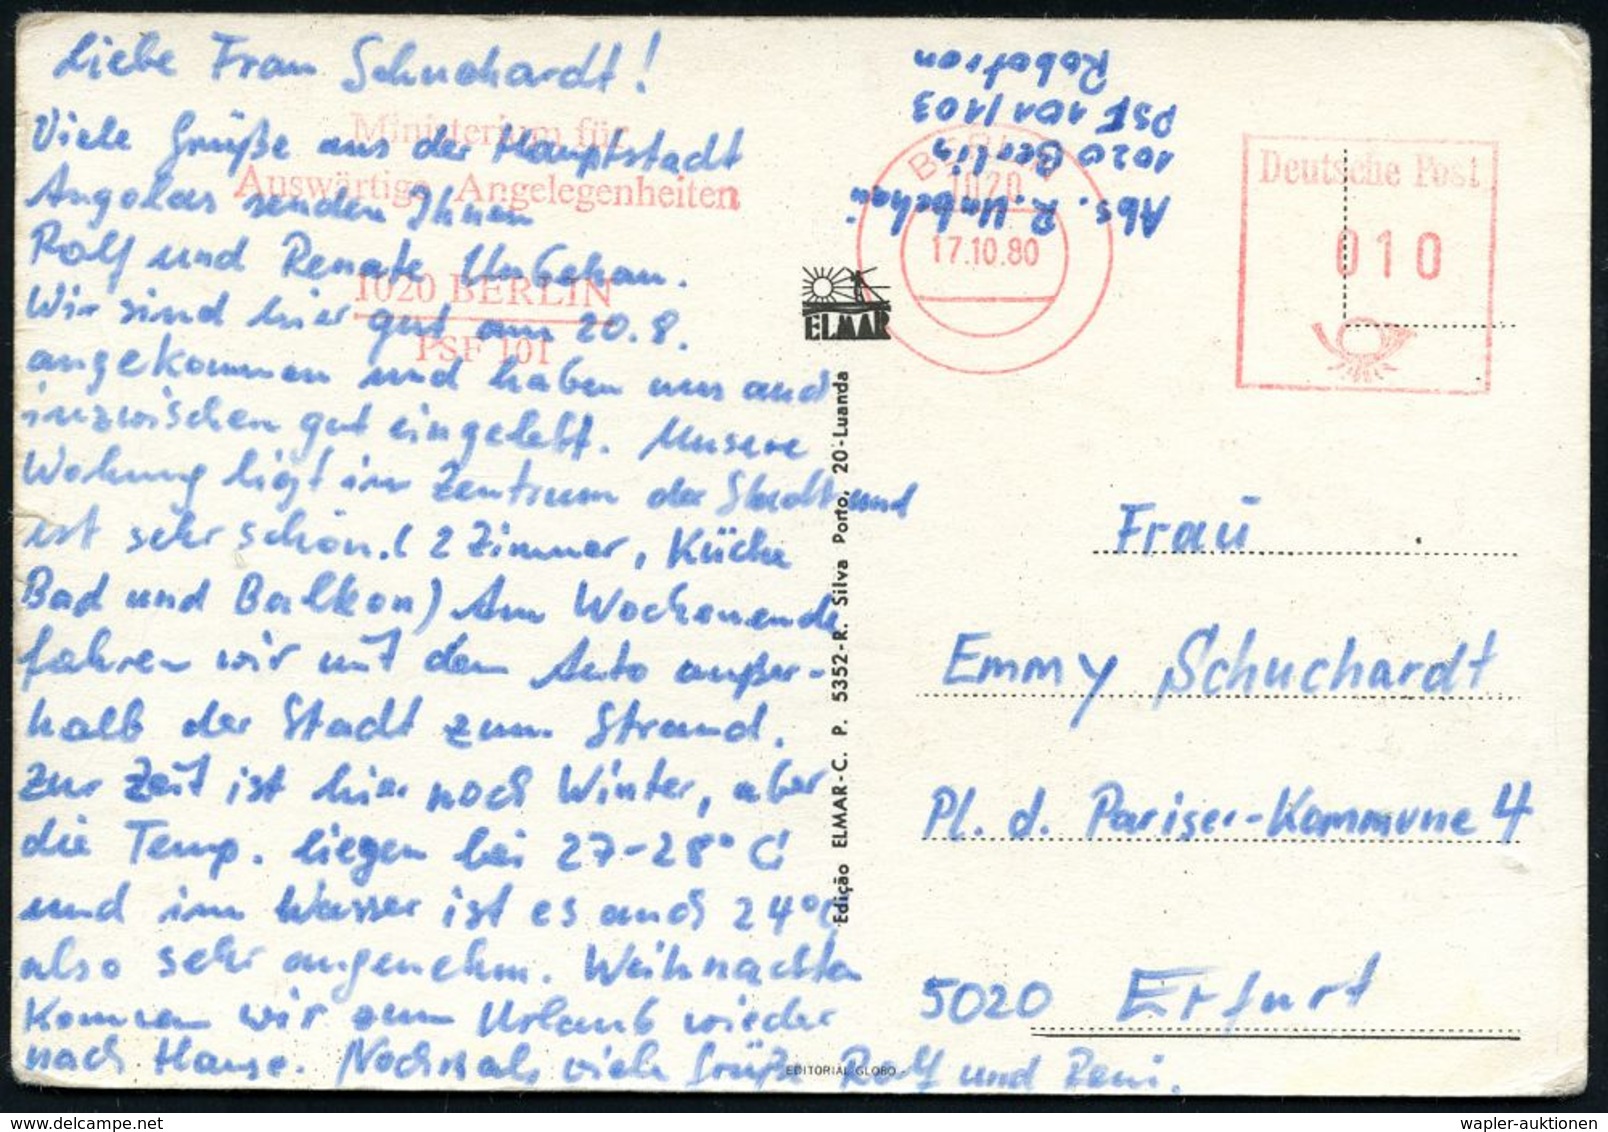 Liebe Frau Schuchardt!
Viele Grüße aus der Hauptstadt
Angolas senden Ihnen
Rolf und Renate Unbehau.
Wir sind hier gut am 20.8.
angekommen und haben uns auch
inzwischen gut eingelebt. Unsere
Wohung liegt im Zentrum der Stadt und
ist sehr schön. (2 Zimmer, Küche
Bad und Balkon) Am Wochenende
fahren wir mit dem Auto außer-
halb der Stadt zum Strand.
Zur Zeit ist hier noch Winter, aber
die Temp. liegen bei 27-28°C
und im Wasser ist es auch 24°C
also sehr angenehm. Weihnachten
kommen wir zum Urlaub wieder
nach Hause. Nochmals viele Grüße Rolf und Reni.
Ministerium für
Auswärtige Angelegenheiten
1020 BERLIN
PSF 101
Abs. R. Unbehau
1020 Berlin
PSF 101/103
Robotron
BERLIN
1020
17.10.80
Deutsche Post
010
ELMAR
Edição ELMAR-C. P. 5352-R. Silva Porto, 20-Luanda
EDITORIAL GLOBO -
Frau
Emmy Schuchardt
Pl. d. Pariser-Kommune 4
5020 Erfurt
wapler-auktionen